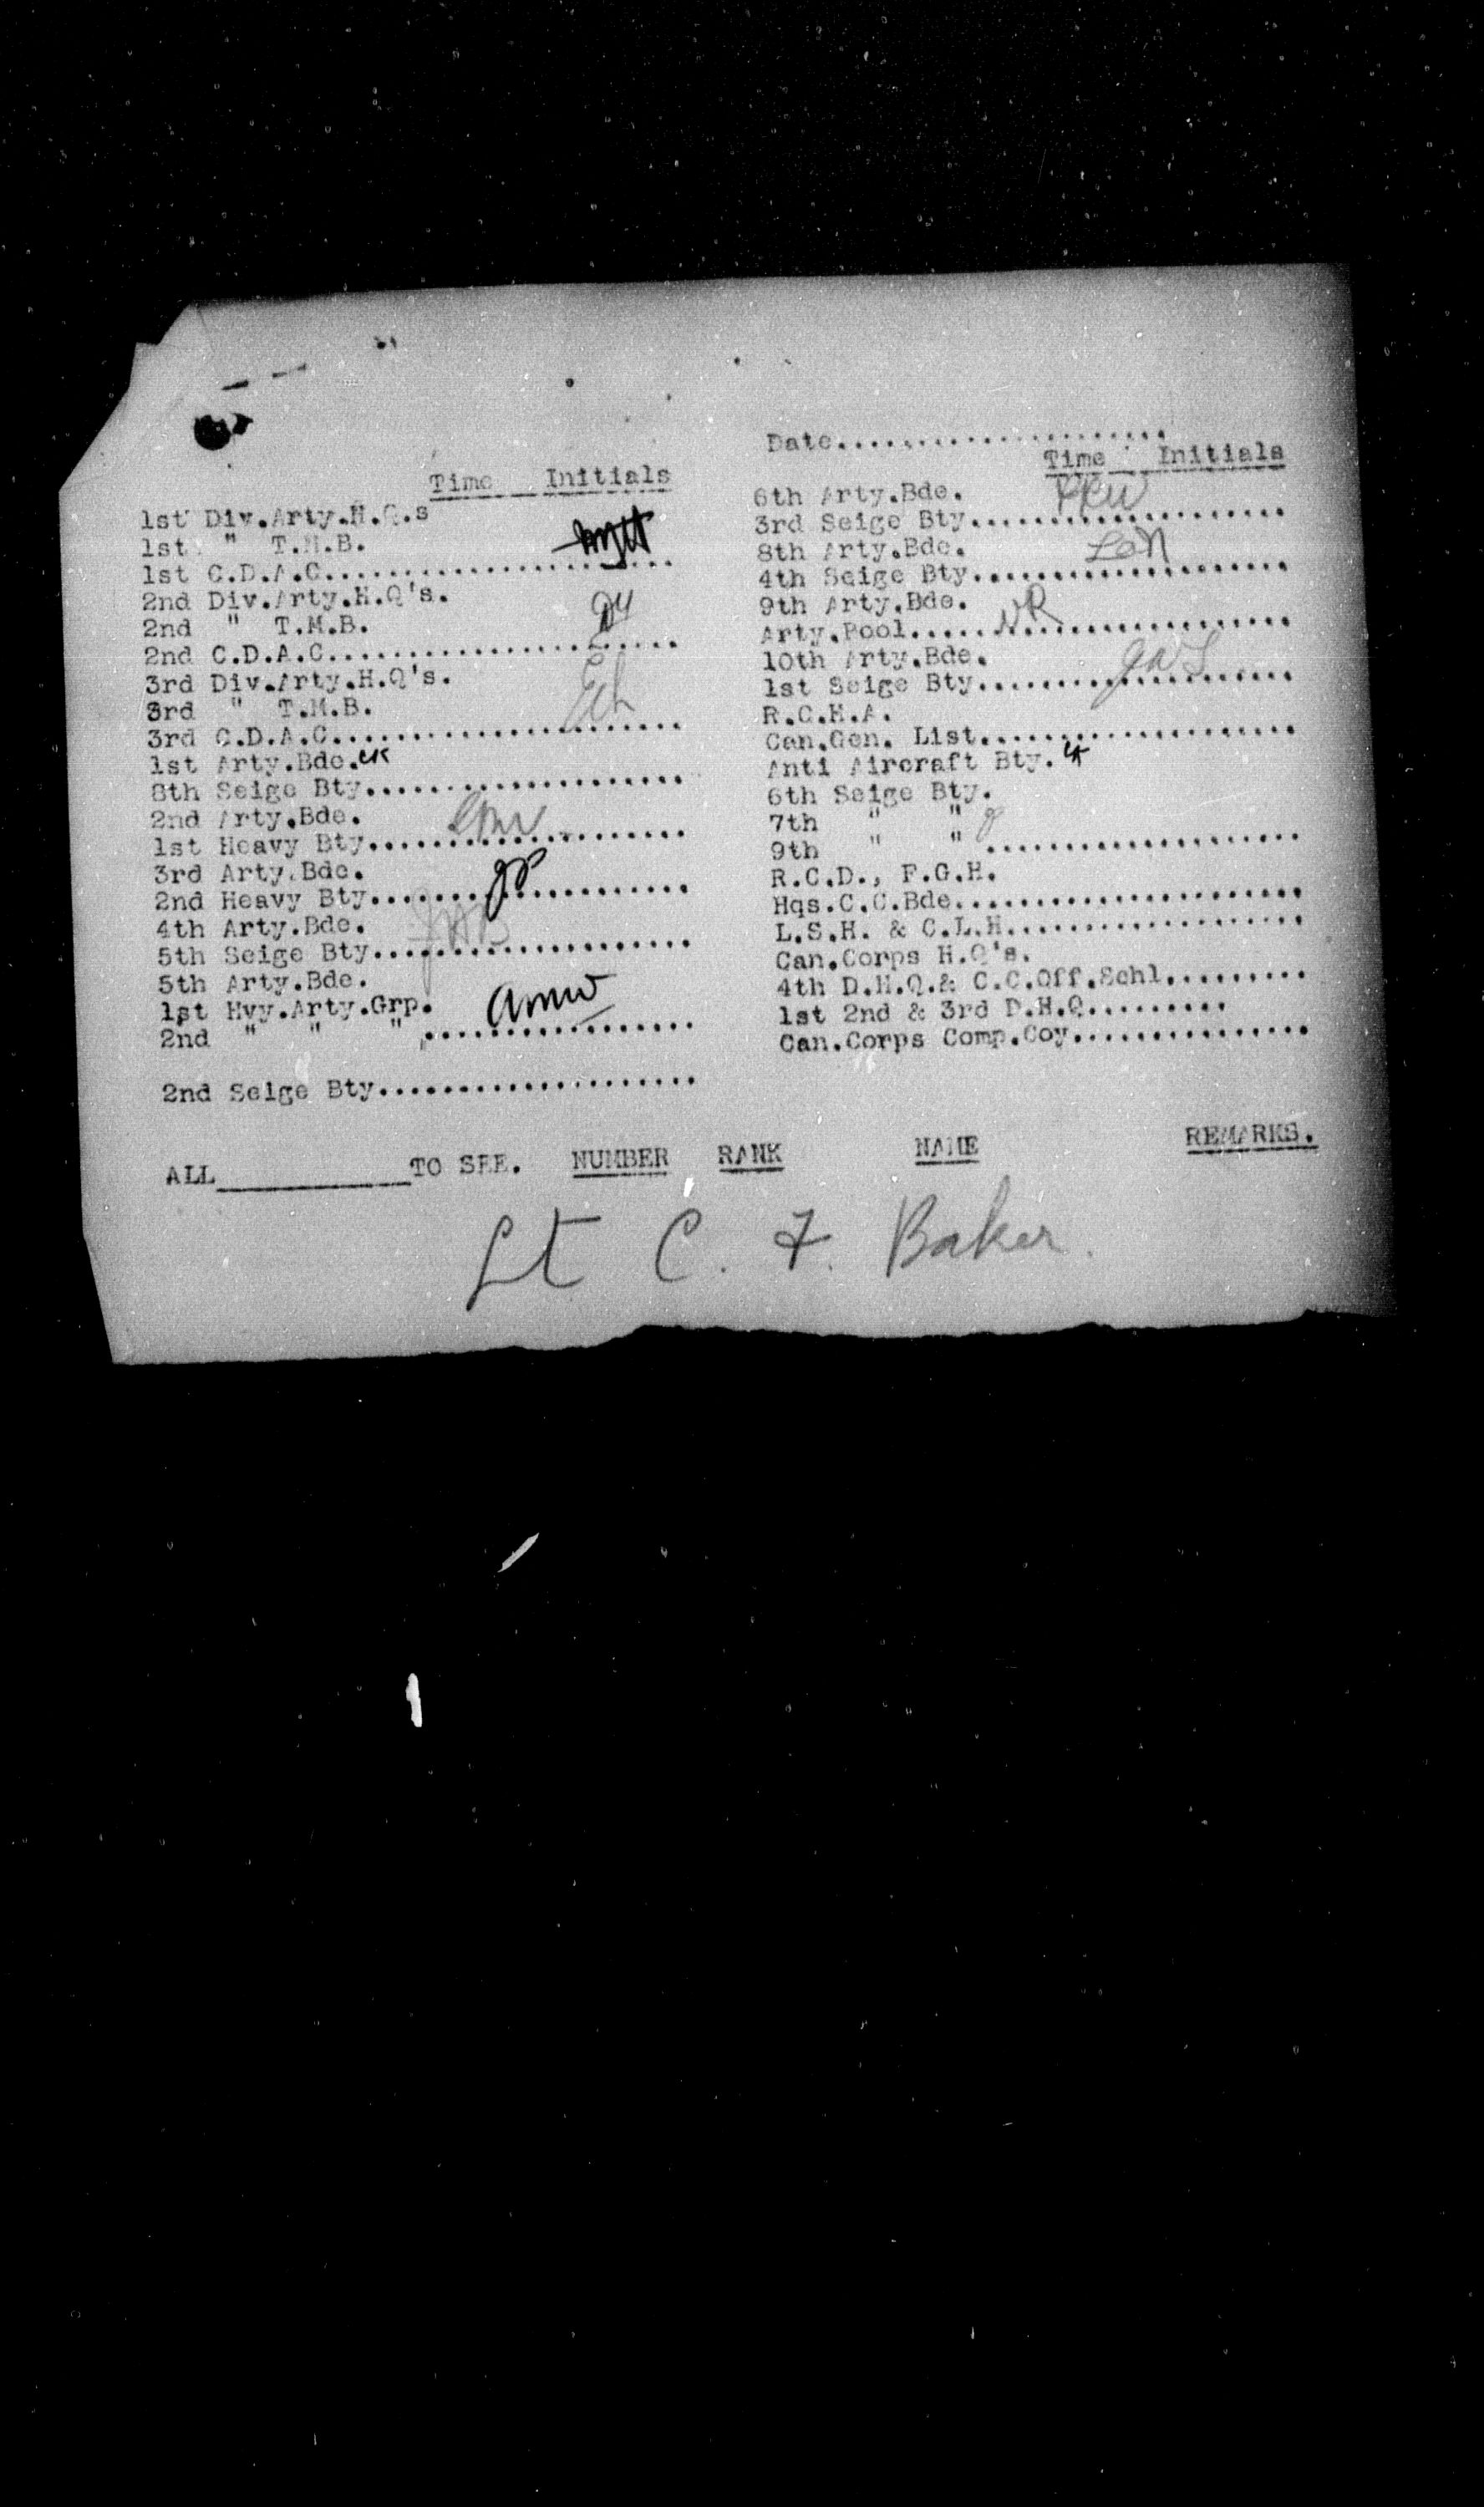 Date......................
Time Initials
1st Div.Arty.H.Q.s
1st " T.M.B.
1st C.D.A.C......................
2nd Div.Arty.H.Q's.
2nd " T.M.B.
2nd C.D.A.C......................
3rd Div.Arty.H.Q's.
3rd " T.M.B.
3rd C.D.A.C......................
1st Arty.Bde.
8th Seige Bty....................
2nd Arty.Bde.
1st Heavy Bty....................
3rd Arty.Bde.
2nd Heavy Bty....................
4th Arty.Bde.
5th Seige Bty....................
5th Arty.Bde.
1st Hvy.Arty.Grp.
amw
2nd " " " .................
2nd Seige Bty....................
Time Initials
6th Arty.Bde.
3rd Seige Bty....................
8th Arty.Bde.
4th Seige Bty....................
9th Arty.Bde.
Arty.Pool..... NR ...................
10th Arty.Bde.
1st Seige Bty....................
R.C.H.A.
Can.Gen. List....................
Anti Aircraft Bty.
6th Seige Bty.
7th " "
9th " " ....................
R.C.D., F.G.H.
Hqs.C.C.Bde......................
L.S.H. & C.L.H...................
Can.Corps H.Q's.
4th D.H.Q.& C.C.Off.Schl.........
1st 2nd & 3rd D.H.Q.........
Can.Corps Comp.Coy...............
ALL____________TO SEE. NUMBER RANK NAME REMARKS.
Lt C. F. Baker.